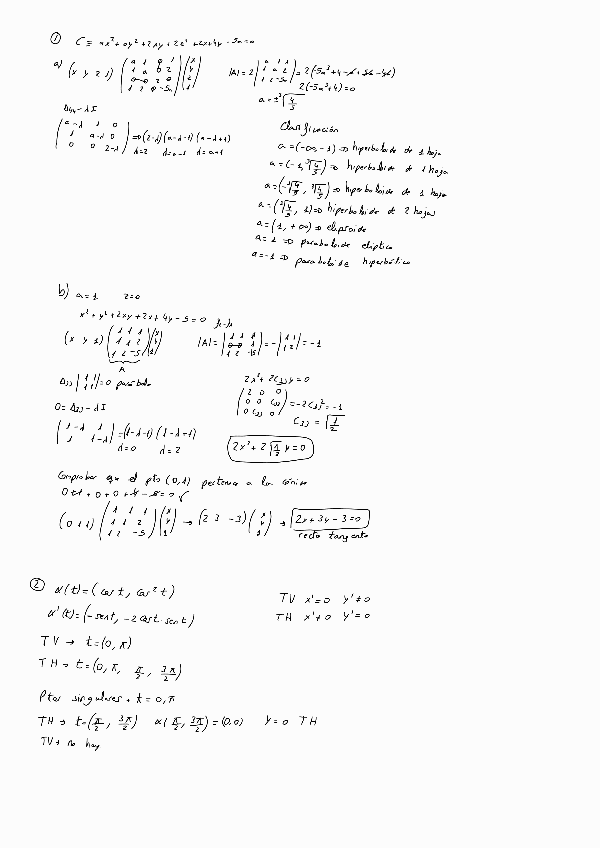 ① C ≡ ax² + ay² + 2xy + 2z² + 2x + 4y - 5a = 0
a) (x y z 1) (a 1 0 1 / 1 a 0 2 / 0 0 2 0 / 1 2 0 -5a) (x / y / z / 1) |A| = 2 |a 1 1 / 1 a 2 / 1 2 -5a| = 2(-5a³+4-a+5a-4a)
2(-5a³+4) = 0
a = ±³√(4/5)
Δ₄₄ - λI
(a-λ 1 0 / 1 a-λ 0 / 0 0 2-λ) ⇒ (2-λ)(a-λ-1)(a-λ+1)
λ=2 λ=a-1 λ=a+1
Clasificación
a = (-∞, -1) ⇒ hiperboloide de 1 hoja
a = (-1, ³√(4/5)) ⇒ hiperboloide de 1 hoja
a = (-³√(4/5), ³√(4/5)) ⇒ hiperboloide de 1 hoja
a = (³√(4/5), 1) ⇒ hiperboloide de 2 hojas
a = (1, +∞) ⇒ elipsoide
a = 1 ⇒ paraboloide elíptico
a = -1 ⇒ paraboloide hiperbólico
b) a = 1 z = 0
x² + y² + 2xy + 2x + 4y - 5 = 0
(x y 1) (1 1 1 / 1 1 2 / 1 2 -5) (x / y / 1) |A| = |1 1 1 / 0 0 1 / 1 2 -5| = -|1 1 / 1 2| = -1
A
Δ₃₃ |1 1 / 1 1| = 0 parábola
2x² + 2C₂₃y = 0
(2 0 0 / 0 0 C₂₃ / 0 C₂₃ 0) = -2C₂₃² = -1
C₂₃ = √(1/2)
0 = Δ₃₃ - λI
|1-λ 1 / 1 1-λ| = (1-λ-1)(1-λ+1)
λ=0 λ=2
2x² + 2√(1/2) y = 0
Comprobar que el pto (0,1) pertenece a la cónica
0 + 1 + 0 + 0 + 4 - 5 = 0 ✓
(0 1 1) (1 1 1 / 1 1 2 / 1 2 -5) (x / y / 1) → (2 3 -3) (x / y / 1) → 2x + 3y - 3 = 0
recta tangente
② α(t) = (cos t, cos² t)
α'(t) = (-sen t, -2 cos t · sen t)
TV x' = 0 y' ≠ 0
TH x' ≠ 0 y' = 0
TV → t = (0, π)
TH → t = (0, π, π/2, 3π/2)
Ptos singulares → t = 0, π
TH → t = (π/2, 3π/2) α(π/2, 3π/2) = (0,0) y = 0 TH
TV → no hay